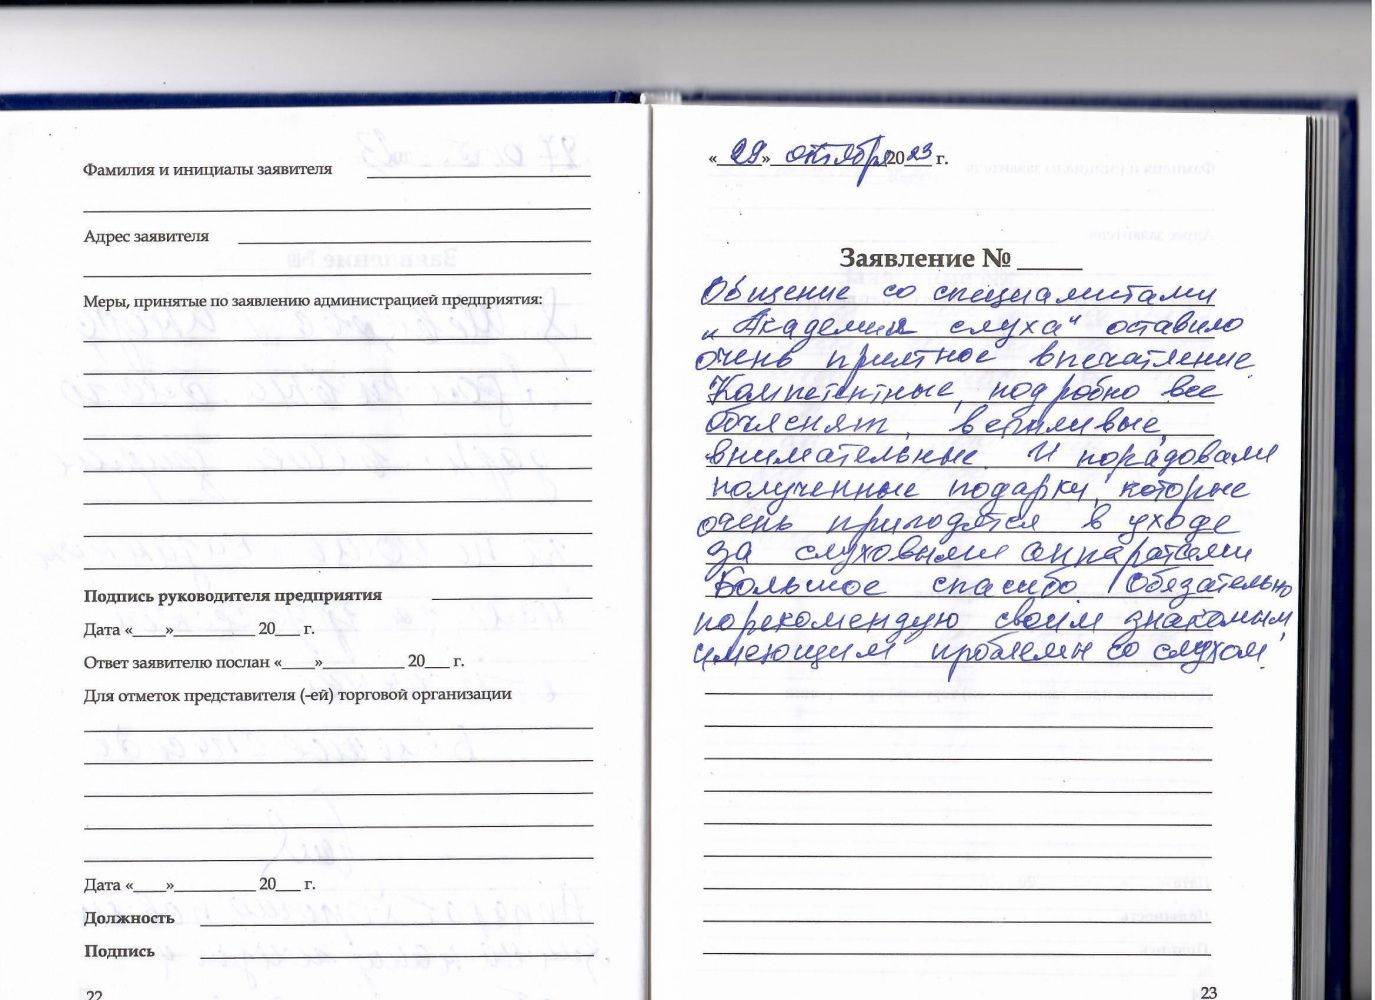 Фамилия и инициалы заявителя
Адрес заявителя
Меры, принятые по заявлению администрацией предприятия:
Подпись руководителя предприятия
Дата «____»__________ 20___ г.
Ответ заявителю послан «____»__________ 20___ г.
Для отметок представителя (-ей) торговой организации
Дата «____»__________ 20___ г.
Должность
Подпись
22
«29» октября 2023 г.
Заявление № ____
Общение со специалистами
„Академия слуха" оставило
очень приятное впечатление.
Компетентные, подробно все
объяснят, вежливые,
внимательные. И порадовали
полученные подарки, которые
очень пригодятся в уходе
за слуховыми аппаратами
Большое спасибо. Обязательно
порекомендую своим знакомым,
имеющим проблемы со слухом.
23